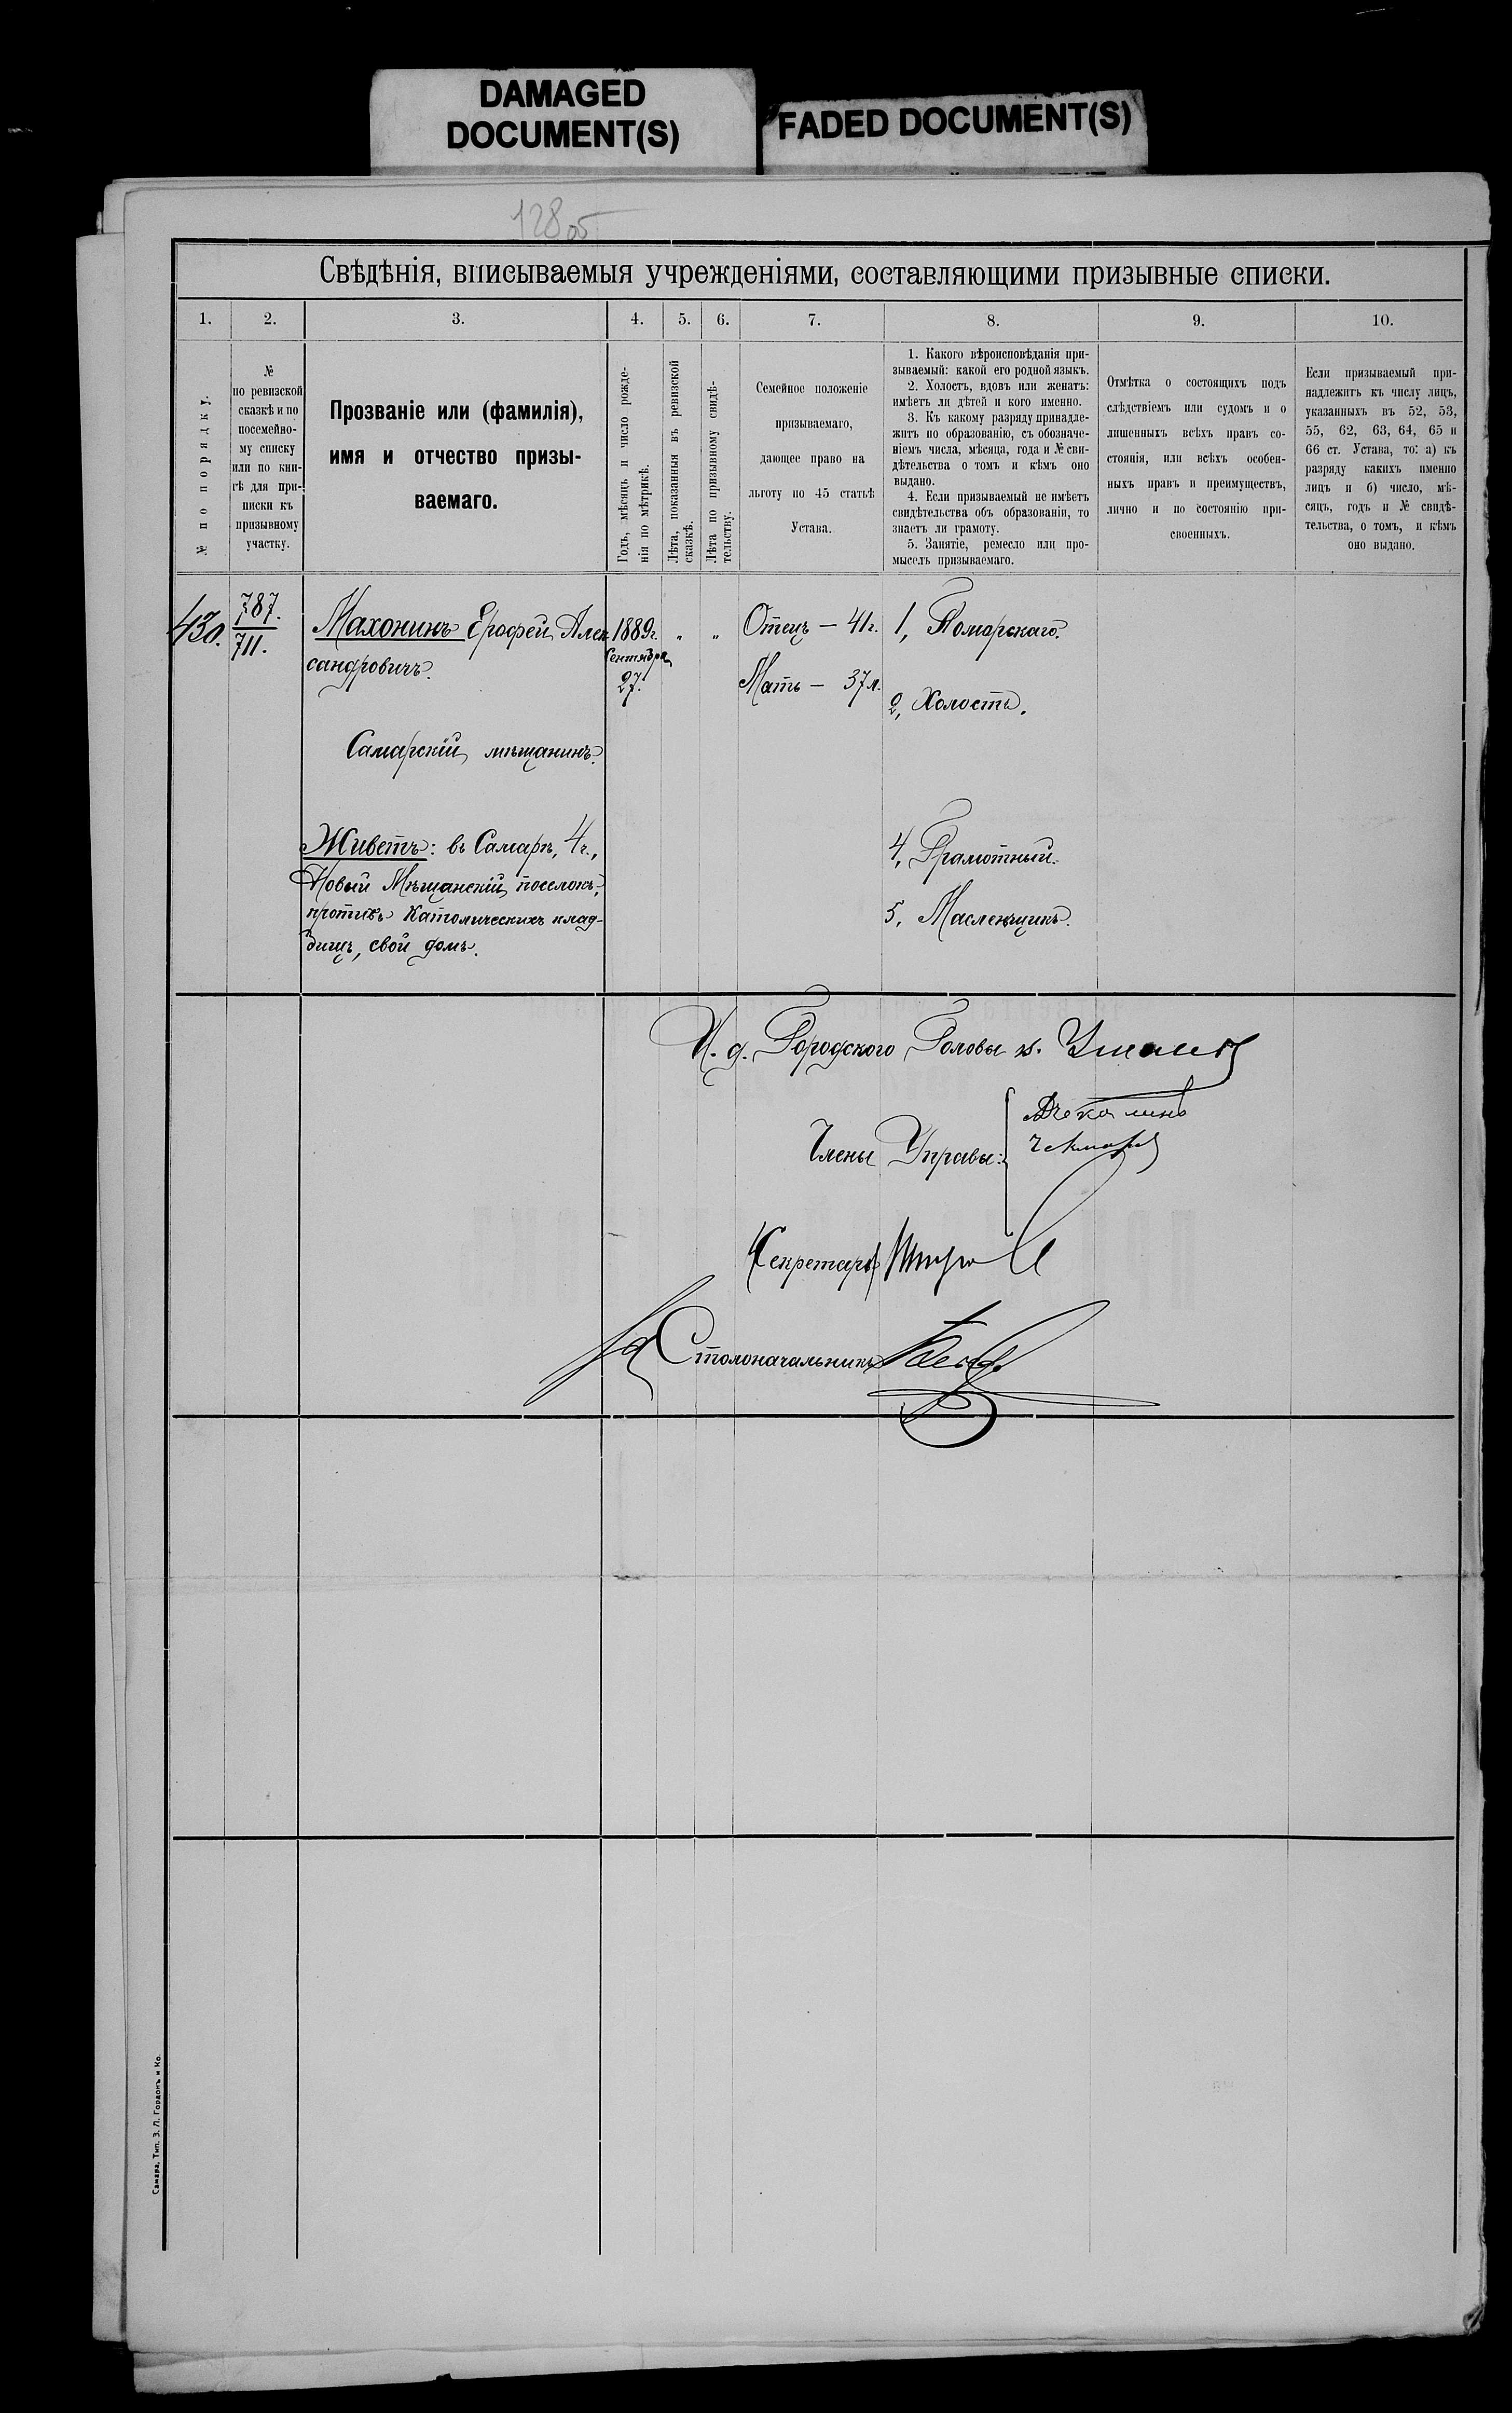 DAMAGED
DOCUMENT(S)
FADED DOCUMENT(S)
128 об
Свѣдѣнія, вписываемыя учрежденіями, составляющими призывные списки.
1. 2. 3. 4. 5. 6. 7. 8. 9. 10.
№ по порядку.
№
по ревизской
сказкѣ и по
посемейно-
му списку
или по кни-
гѣ для при-
писки къ
призывному
участку.
Прозваніе или (фамилія),
имя и отчество призы-
ваемаго.
Годъ, мѣсяцъ и число рожде-
нія по мѣтрикѣ.
Лѣта, показанныя въ ревизской
сказкѣ.
Лѣта по призывному свидѣ-
тельству.
Семейное положеніе
призываемаго,
дающее право на
льготу по 45 статьѣ
Устава.
1. Какого вѣроисповѣданія при-
зываемый: какой его родной языкъ.
2. Холостъ, вдовъ или женатъ:
имѣетъ ли дѣтей и кого именно.
3. Къ какому разряду принадле-
житъ по образованію, съ обозначе-
ніемъ числа, мѣсяца, года и № сви-
дѣтельства о томъ и кѣмъ оно
выдано.
4. Если призываемый не имѣетъ
свидѣтельства объ образованіи, то
знаетъ ли грамоту.
5. Занятіе, ремесло или про-
мыселъ призываемаго.
Отмѣтка о состоящихъ подъ
слѣдствіемъ или судомъ и о
лишенныхъ всѣхъ правъ со-
стоянія, или всѣхъ особен-
ныхъ правъ и преимуществъ,
лично и по состоянію при-
своенныхъ.
Если призываемый при-
надлежитъ къ числу лицъ,
указанныхъ въ 52, 53,
55, 62, 63, 64, 65 и
66 ст. Устава, то: а) къ
разряду какихъ именно
лицъ и б) число, мѣ-
сяцъ, годъ и № свидѣ-
тельства, о томъ, и кѣмъ
оно выдано.
430.
787.
711.
Махонинъ Ерофей Алек
сандровичъ.
Самарскій мѣщанинъ.
Живетъ: въ Самарѣ, 4 ч.,
Новый Мѣщанскій поселокъ,
противъ Католическихъ клад-
бищъ, свой домъ.
1889 г.
Сентября
27.
" "
Отецъ — 41 г.
Мать — 37 л.
1, Поморскаго.
2, Холостъ.
4, Грамотный.
5, Масленщикъ.
И. д. Городского Головы
Члены Управы:
Секретарь
Столоначальникъ
Самара, Тип. З. Л. Гордонъ и Ко.